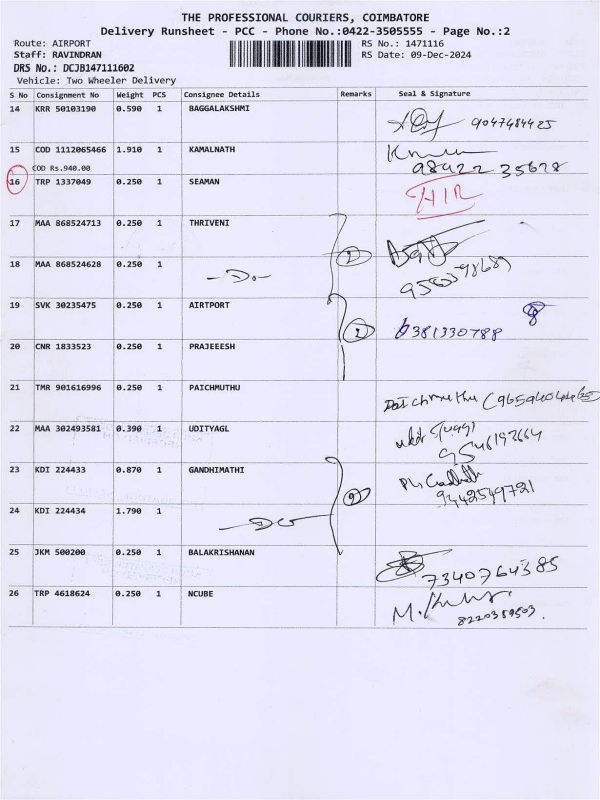 THE PROFESSIONAL COURIERS, COIMBATORE
Delivery Runsheet - PCC - Phone No.:0422-3505555 - Page No.:2
Route: AIRPORT RS No.: 1471116
Staff: RAVINDRAN RS Date: 09-Dec-2024
DRS No.: DCJB147111602
Vehicle: Two Wheeler Delivery
S No Consignment No Weight PCS Consignee Details Remarks Seal & Signature
14 KRR 50103190 0.590 1 BAGGALAKSHMI
9047484425
15 COD 1112065466 1.910 1 KAMALNATH
COD Rs.940.00 98422 35628
16 TRP 1337049 0.250 1 SEAMAN
17 MAA 868524713 0.250 1 THRIVENI
18 MAA 868524628 0.250 1
-Do-
19 SVK 30235475 0.250 1 AIRTPORT
6381330788
20 CNR 1833523 0.250 1 PRAJEEESH
21 TMR 901616996 0.250 1 PAICHMUTHU
22 MAA 302493581 0.390 1 UDITYAGL
23 KDI 224433 0.870 1 GANDHIMATHI
9442549721
24 KDI 224434 1.790 1
-Do-
25 JKM 500200 0.250 1 BALAKRISHANAN
7340764385
26 TRP 4618624 0.250 1 NCUBE
8220389503